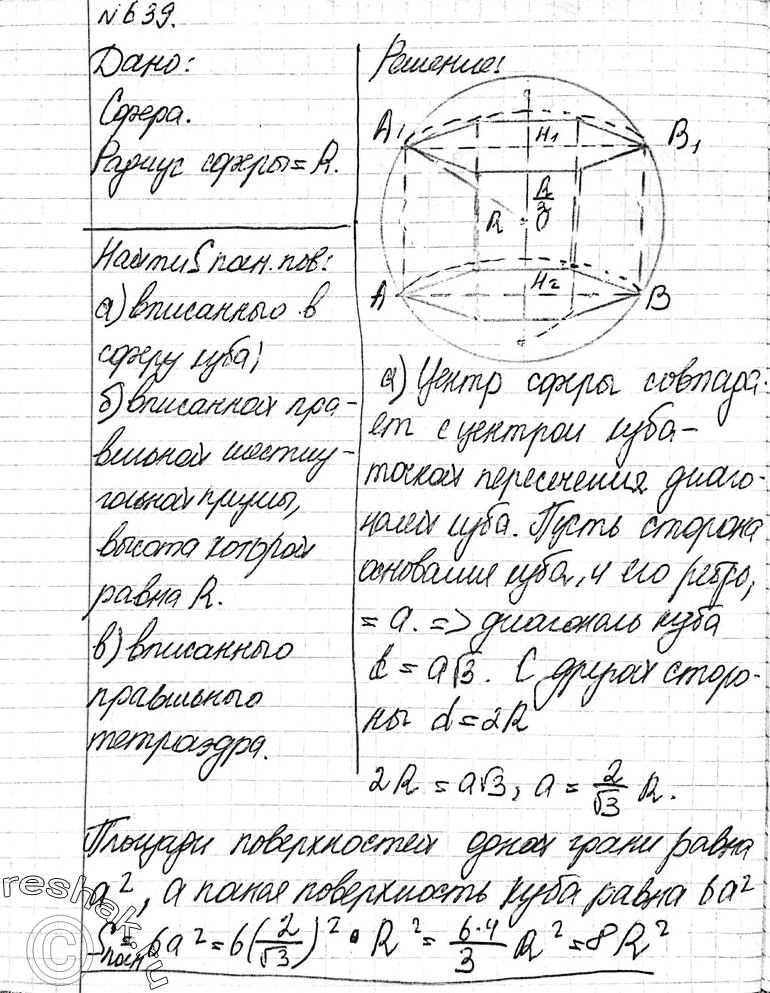 №639.
Дано:
Сфера.
Радиус сферы = R.
Найти S полн. пов:
а) вписанного в
сферу куба;
б) вписанной пра-
вильной шестиу-
гольной призмы,
высота которой
равна R.
в) вписанного
правильного
тетраэдра.
Решение:
A₁ H₁ B₁
R/2
R O
A H₂ B
а) Центр сферы совпада-
ет с центром куба -
точкой пересечения диаго-
налей куба. Пусть сторона
основания куба, и его ребро,
= a. => диагональ куба
d = a√3. С другой сторо-
ны d = 2R
2R = a√3, a = 2/√3 R.
Площади поверхностей одной грани равна
a², а полная поверхность куба равна 6a²
Sполн = 6a² = 6(2/√3)² · R² = 6·4/3 R² = 8R²
© reshak.ru